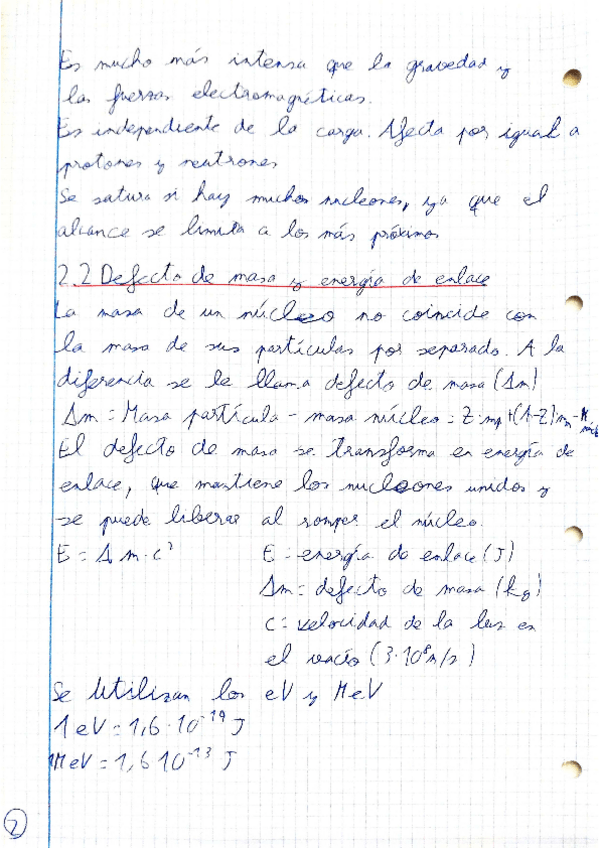 Es mucho más intensa que la gravedad y
las fuerzas electromagnéticas.
Es independiente de la carga. Afecta por igual a
protones y neutrones
Se satura si hay muchos nucleones, ya que el
alcance se limita a los más próximos
2.2 Defecto de masa y energía de enlace
La masa de un núcleo no coincide con
la masa de sus partículas por separado. A la
diferencia se le llama defecto de masa (Δm)
Δm = Masa partícula - masa núcleo = Z·mp+(A-Z)mn - M núcl
El defecto de masa se transforma en energía de
enlace, que mantiene los nucleones unidos y
se puede liberar al romper el núcleo.
E = Δm·c² E = energía de enlace (J)
Δm = defecto de masa (kg)
c = velocidad de la luz en
el vacío (3·10⁸m/s)
Se utilizan los eV y MeV
1eV = 1,6·10⁻¹⁹ J
1MeV = 1,6 10⁻¹³ J
2